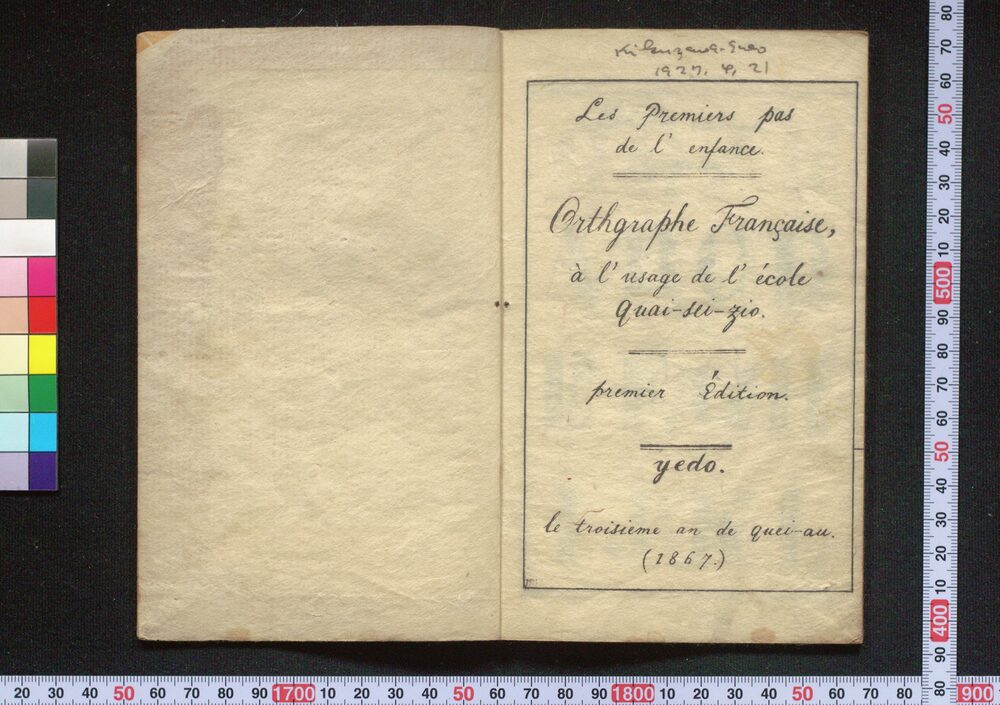 1927. 4, 21
Les Premiers pas
de l' enfance.
Orthgraphe Française,
à l' usage de l' école
Quai-sei-zio.
premier Édition.
yedo.
le troisieme an de quei-au.
(1867.)
80
70
60
50
40
30
20
10
500
90
80
70
60
50
40
30
20
10
400
90
80
20 30 40 50 60 70 80 90 1700 10 20 30 40 50 60 70 80 90 1800 10 20 30 40 50 60 70 80 900